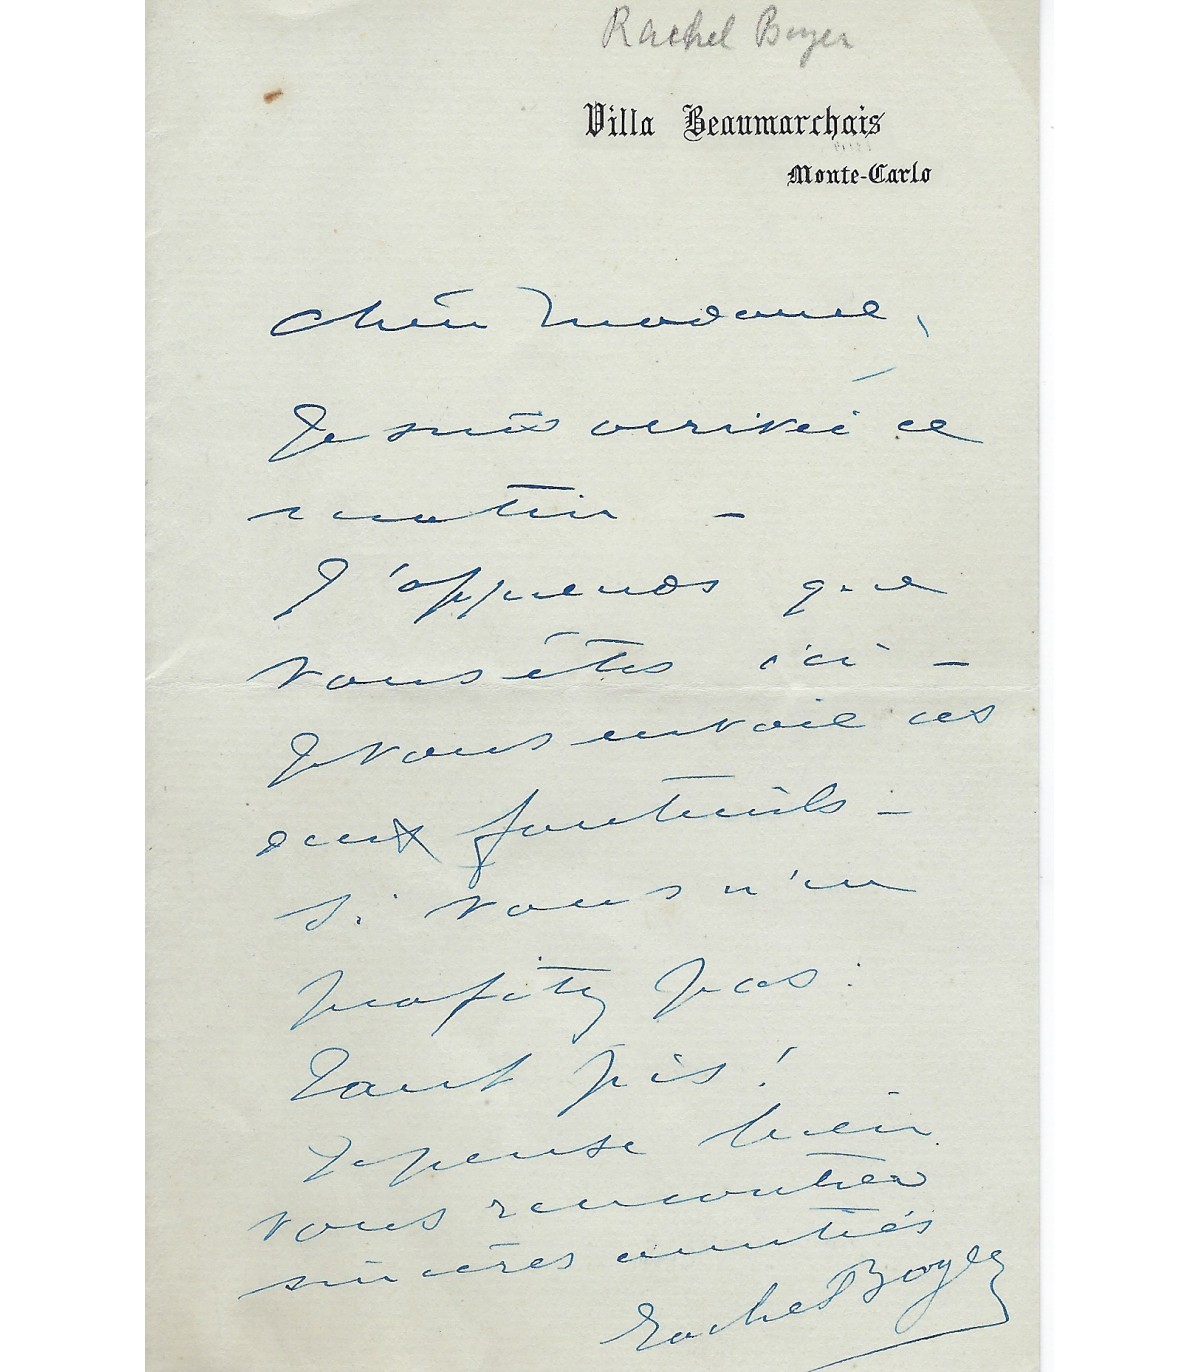 Rachel Boyer
Villa Beaumarchais
Monte-Carlo
Chère Madame,
Je suis arrivée ce
matin -
J'apprends que
vous êtes ici -
Je vous envoie ces
deux fauteuils -
Si vous n'en
profitez pas.
Tant pis!
Je pense bien
vous rencontrer
sincères amitiés
Rachel Boyer